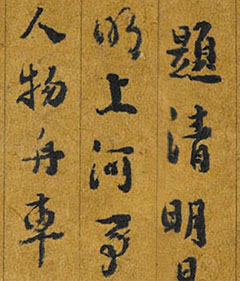 題清明
明上河
人物舟車